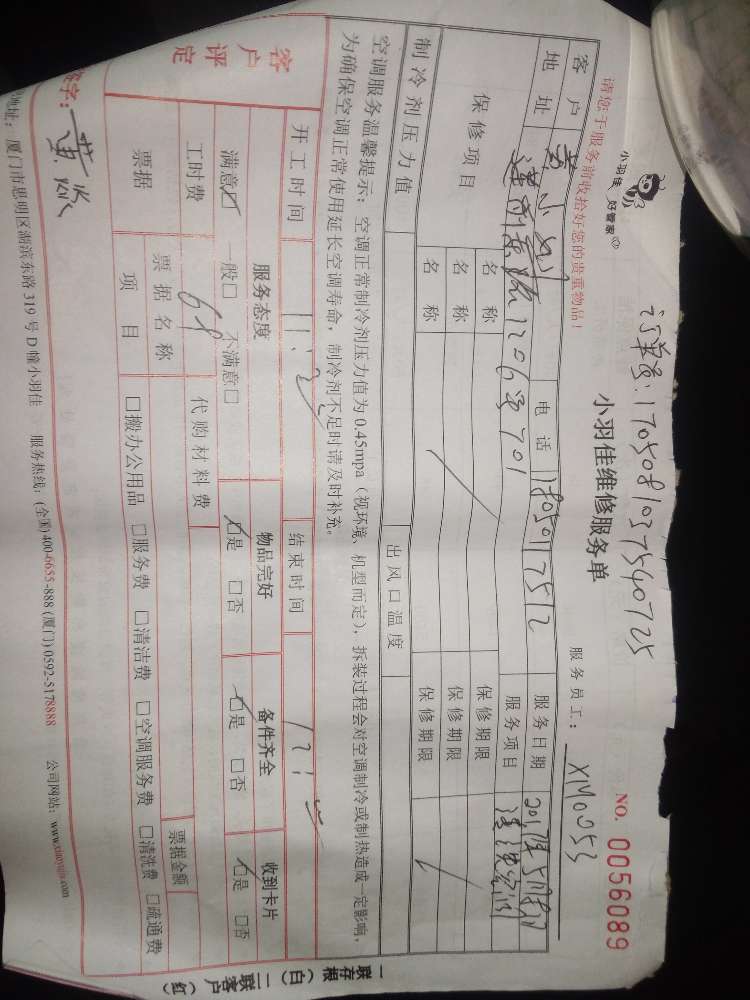 小羽佳 好管家
订单号:1705081037540725
请您于服务前收拾好您的贵重物品!
小羽佳维修服务单
服务员工: XM0053
NO. 0056089
客户
电话
服务日期 2017年5月8日
地址 1206号701
服务项目 清洗空调
保修项目
名称
保修期限
名称
保修期限
名称
保修期限
制冷剂压力值
出风口温度
空调服务温馨提示:空调正常制冷剂压力值为0.45mpa(视环境、机型而定),拆装过程会对空调制冷或制热造成一定影响,
为确保空调正常使用延长空调寿命,制冷剂不足时请及时补充。
开工时间
结束时间
客户评定
服务态度 物品完好 备件齐全 收到卡片
满意☑ 一般□ 不满意□ ☑是 □否 ☑是 □否 ☑是 □否
工时费 68 代购材料费
票据
票据名称
票据金额
项目 □搬办公用品 □服务费 □清洁费 □空调服务费 □清洗费 □疏通费
签字:
地址:厦门市思明区湖滨东路319号D幢小羽佳 服务热线:(全国)400-6655-888 (厦门)0592-5178888 公司网站:www.xiaoyujia.com
一联存根(白)二联客户(红)